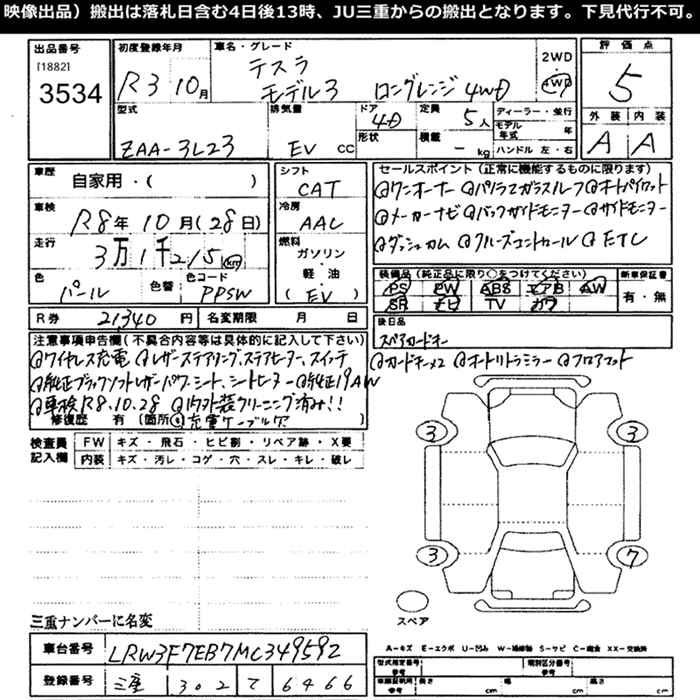 映像出品）搬出は落札日含む4日後13時、JU三重からの搬出となります。下見代行不可。
出品番号 初度登録年月 車名・グレード 評価点
[1882]
3534 R3 10月 テスラ モデル3 ロングレンジ 4WD 2WD 4WD 5
型式 排気量 ドア 定員 ディーラー・並行 外装 内装
ZAA-3L23 EV CC 4D 5人 モデル年式 年 A A
形状 積載 - kg ハンドル 左・右
車歴 自家用・( ) シフト CAT
セールスポイント (正常に機能するものに限ります)
@ワンオーナー @パノラマガラスルーフ @オートパイロット
車検 R8年10月(28日) 冷房 AAC
@メーカーナビ @バックガイドモニター @サイドモニター
走行 3万1千215 km 燃料 ガソリン・軽油 (EV)
@ダッシュカム @クルーズコントロール @ETC
色 パール 色替 色コード PPSW
装備品 (純正品に限り○をつけてください) 新車保証書
PS PW ABS エアB AW 有・無
SR ナビ TV カワ
R券 21,340円 名変期限 月 日
後日品
スペアカードキー
注意事項申告欄 (不具合内容等は具体的に記入して下さい)
@ワイヤレス充電 @レザーステアリング、ステアヒーター、スイッチ @カードキー×2 @オートリトラミラー @フロアマット
@純正ブラックソフトレザーパワーシート、シートヒーター @純正19AW
@車検R8.10.28 @内外装クリーニング済み!!
修復歴 有 (箇所 充電ケーブル欠
検査員記入欄 FW キズ・飛石・ヒビ割・リペア跡・X要
内装 キズ・汚レ・コゲ・穴・スレ・キレ・破レ
3 3
3 7
スペア
三重ナンバーに名変
車台番号 LRW3F7EB7MC349592
A-キズ E-エクボ U-凹み W-補修跡 S-サビ C-腐食 XX-交換済
登録番号 三重 302 て 6466
型式指定番号 参考 類別区分番号 参考
長さ cm 幅 cm 高さ cm